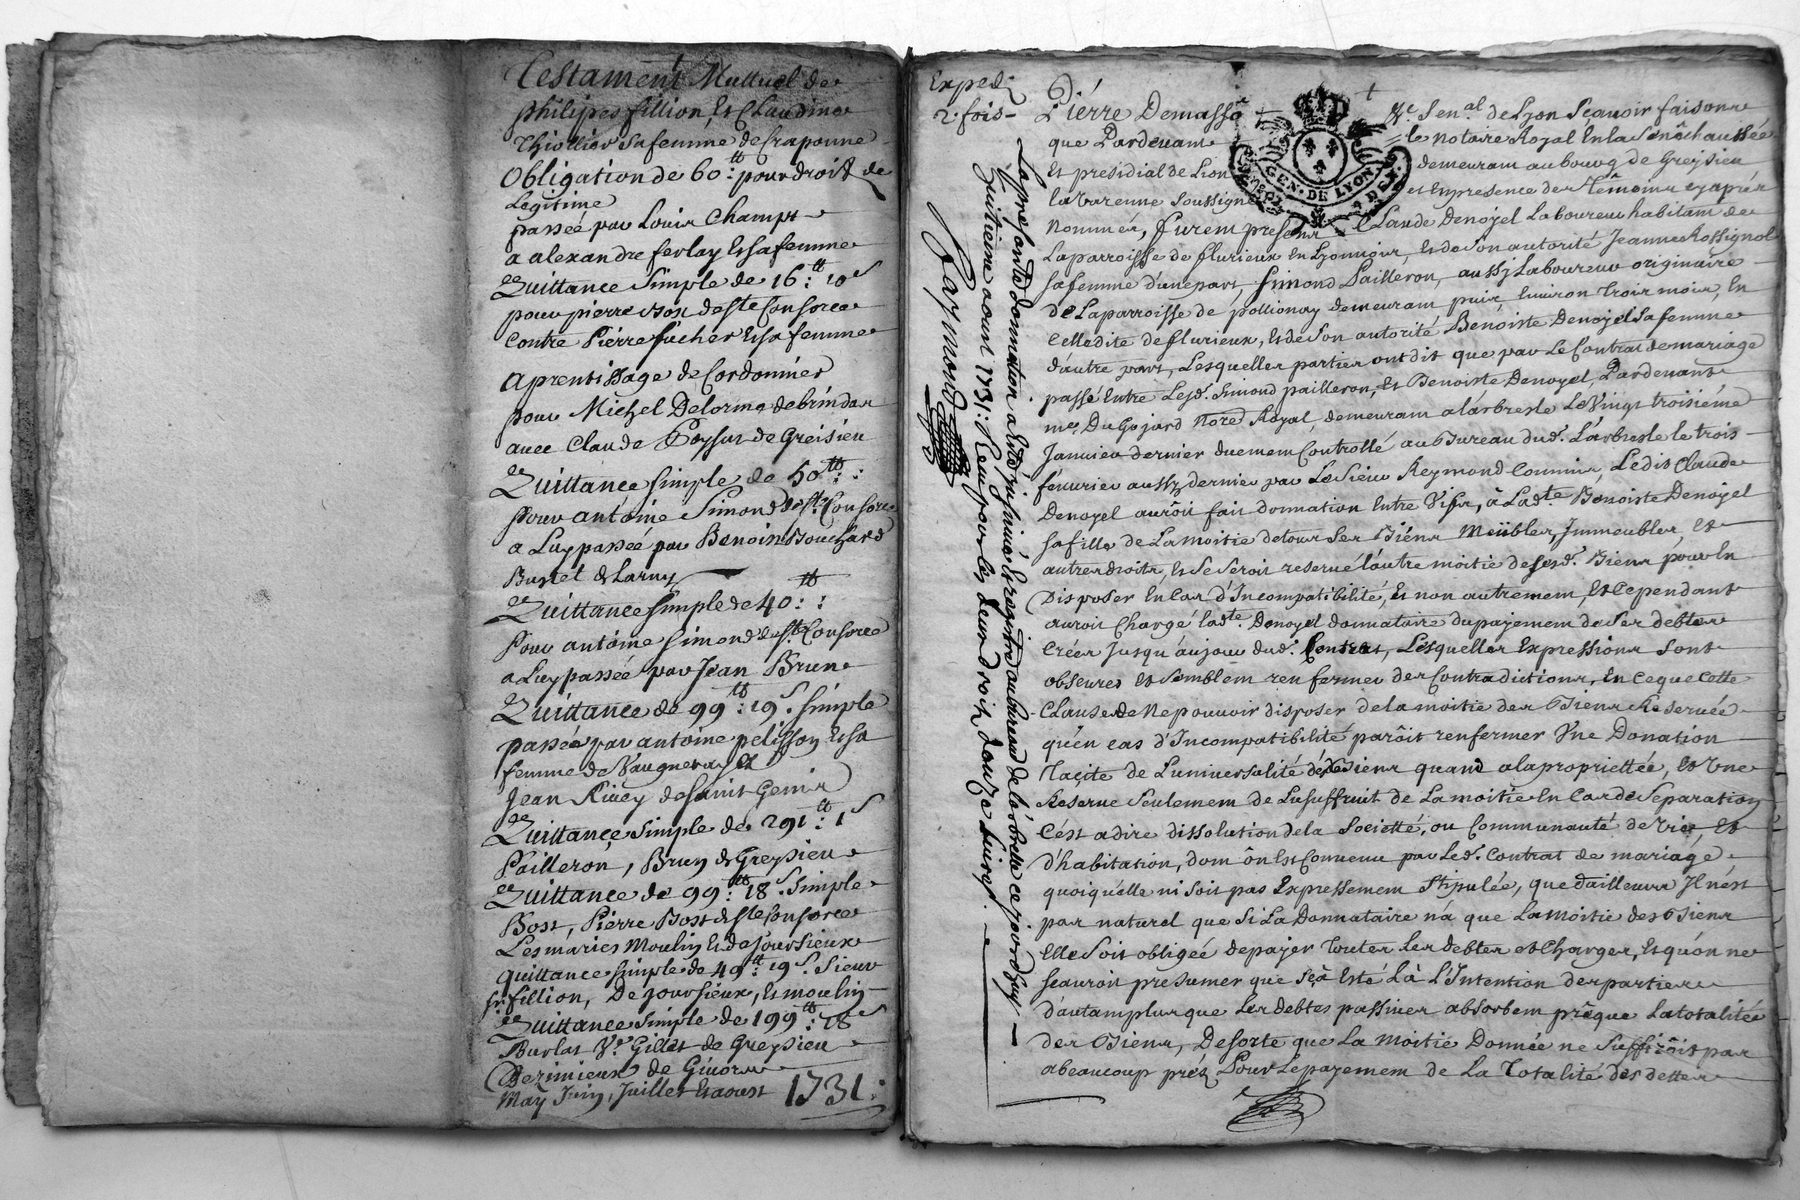 Testament Muttuel de
philipes fillion, Et Claudine
Thiollier sa femme de Craponne
Obligation de 60:tt pour droit de
Legitime
passée par Louis Champt
a alexandre ferlay Et sa femme
Quittance Simple de 16:tt 10s
pour pierre Bost de Ste Consorce
Contre Piérre fucher Et sa femme
Aprentissage de Cordonnier
pour Michel Delorme de brindas
avec Claude Poyfut de Greisieu
Quittance simple de 50tt::
Pour antoine Simond de Ste Consorce
a Luy passée par Benoist Bouchard
Burtel & Larny
Quittance simple de 40:tt:
Pour antoine Simond de Ste Consorce
a Luy passée par Jean Brun
Quittance de 99:tt 19.s simple
passée par antoine pelisson Et sa
femme de Vaugneray et
Jean Rivey de saint Genis
Quittance simple de 291:tt 1s
Pailleron, Brun de Greysieu
Quittance de 99:tt 18.s simple
Bost, Pierre Bost de Ste Consorce
Les mariés Moulin Et de Joursieux
quittance simple de 49:tt 19s. Sieur
fillion, De Joursieux, Et moulin
Quittance simple de 199:tt 18s
Burlat Ve Gillet de Greysieu
Dezimieux de Givors
May Juin, Juillet Et aoust 1731:
Exped.
2. fois
La presente donnation a Eté jnsinué, Et registré au bureau de larbresle ce jourdhuy
huitieme aoust 1731: Receu pour les deux droits douze livres.
Raymond
GEN. DE LYON
Piérre Demasso
Sen.al de Lyon Sçavoir faisons
que Pardevant
le notaire Royal En la Senéchaussée
Et presidial de Lion
demeurant au bourg de Greysieu
la Varenne soussigné
et En presence des Témoins cy aprés
Nommés, furent presens Claude Denoyel Laboureur habitant de
La parroisse de flurieux En Lyonnois, Et de son autorité Jeanne Rossignol
sa femme d'une part, Simond Pailleron, aussy Laboureur originaire
De La parroisse de pollionay demeurant puis Environ trois mois, En
Celle dite de flurieux, Et de son autorité Benoiste Denoyel sa femme
d'autre part, Lesquelles parties ont dit que par Le Contrat de mariage
passé Entre Led. Simond pailleron, Et Benoiste Denoyel, Pardevant
me. Du Gojard no.re Royal, demeurant a larbresle Le Vingt troisiéme
Janvier dernier duement Controllé au Bureau dud. L'arbresle le trois
fevrier aussy dernier par Le Sieur Reymond Commis, Ledit Claude
Denoyel auroit fait donnation Entre Vifs, à Lad.te Benoiste Denoyel
sa fille de La moitié de tous ses Biens Meübles, Immeubles, Et
autres droits, Et se seroit reservé l'autre moitié de sesd. Biens pour En
Disposer En Cas d'Incompatibilité, Et non autrement, Et Cependant
auroit Chargé lad.te Denoyel donnataire du payement de ses debtes
Créés Jusqu'aujour dud. Contrat, Lesquelles Expressions sont
obscures Et semblent renfermer des Contradictions, En ce que Cette
Clause de Ne pouvoir disposer de la moitié des Biens Reservée
qu'en cas d'Incompatibilité parôit renfermer Vne Donation
Taçite de L'universalité des Biens quand a la propriettée, Et Vne
Reserve Seulement de L'usuffruit de La moitié En Cas de Separation
C'est a dire dissolution de la Societté, ou Communauté de Vie, Et
d'habitation, dont ôn Est Convenu par Led. Contrat de mariage
quoiqu'elle ni soit pas Expressement Stipulée, que d'ailleurs Il n'est
pas naturel que Si La Donnataire n'a que La Moitié des Biens
Elle soit obligée de payer toutes Les debtes et Charges, Et qu'ôn ne
sçauroit presumer que Sçà Eté Là L'Intention des parties
d'autamplus que Les debtes passives absorbent présque La totalitée
des Biens, De sorte que La Moitié Donnée ne Suffiroit pas
a beaucoup prés Pour Le payement de La Totalité des dettes